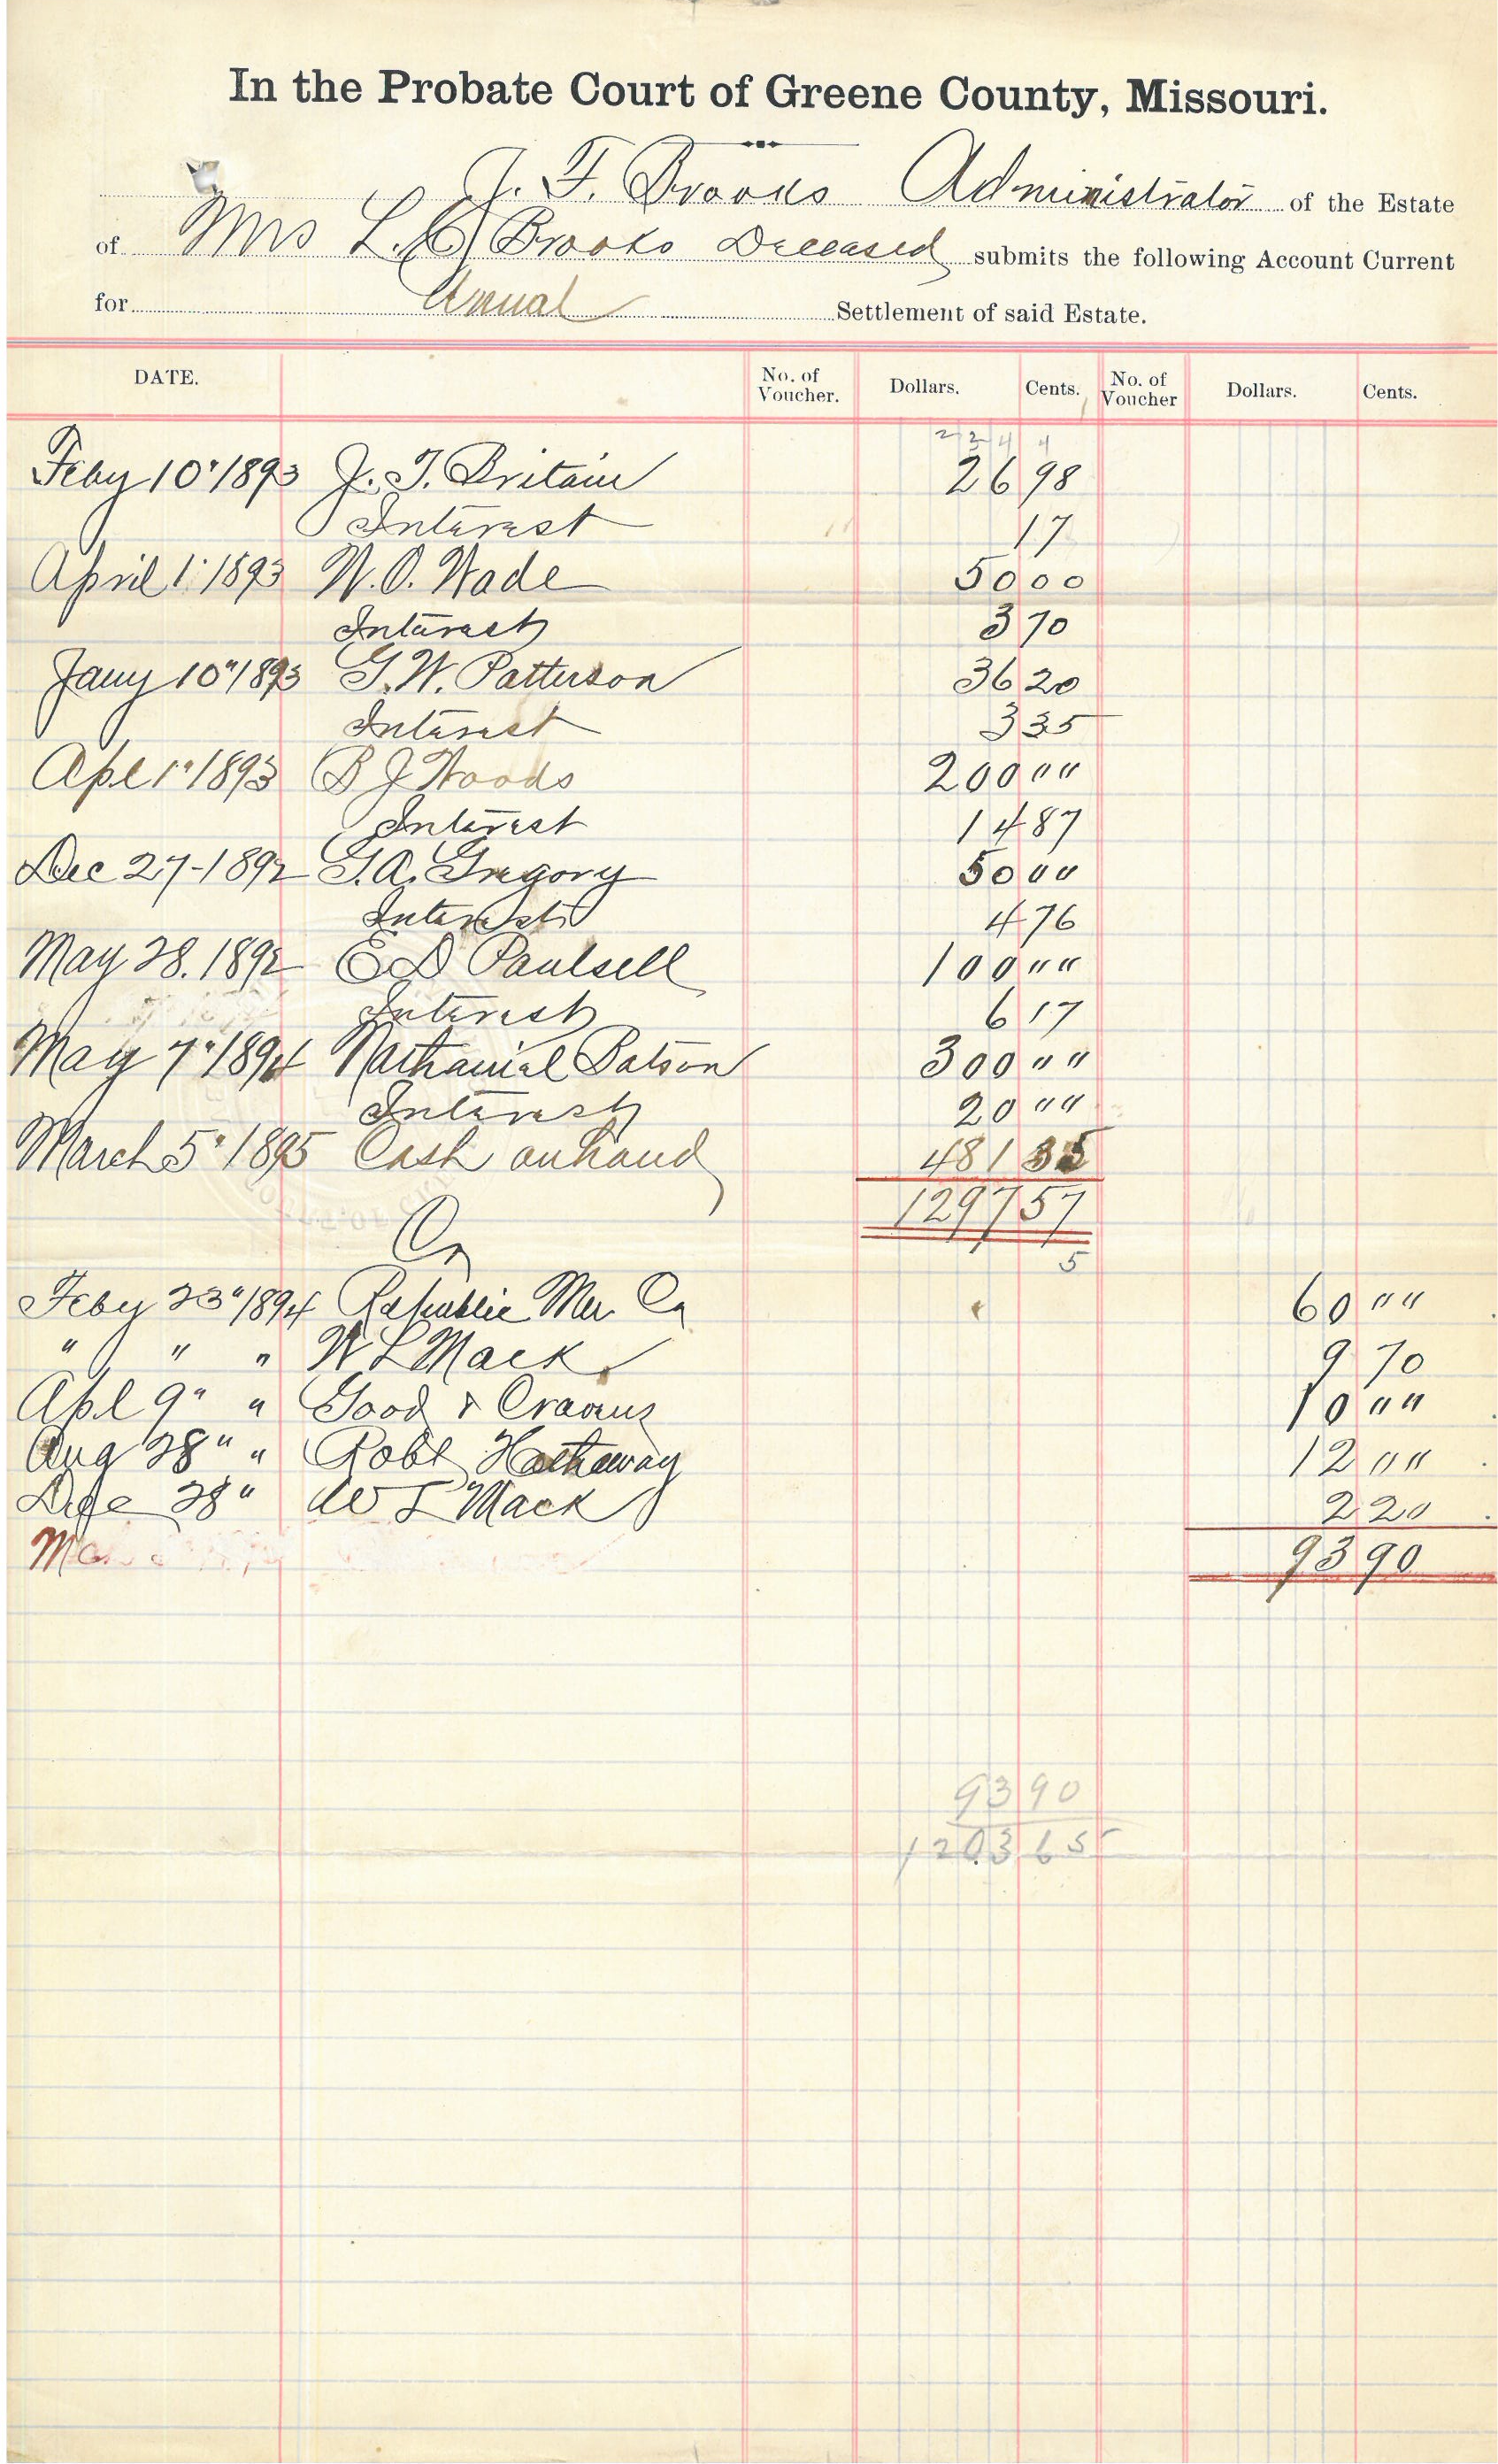 In the Probate Court of Greene County, Missouri.
J. F. Brooks Administrator of the Estate
of Mrs L. C. Brooks Deceased submits the following Account Current
for Anual Settlement of said Estate.
DATE. No. of Voucher. Dollars. Cents. No. of Voucher Dollars. Cents.
2 2 4 4
Feby 10" 1893 J. T. Britain 26 98
Interest 17
April 1" 1893 W. O. Wade 50 00
Interest 3 70
Jany 10" 1893 G. W. Patterson 36 20
Interest 3 35
Apl 1" 1893 B J Woods 200 ""
Interest 14 87
Dec 27-1892 G. A. Gregory 50 ""
Interest 4 76
May 28. 1892 E D Paulsell 100 ""
Interest 6 17
May 7" 1894 Nathanial Batson 300 ""
Interest 20 ""
March 5" 1895 Cash on hand 481 35
1297 57
Cr 5
Feby 23" 1894 Republic Mer Co 60 ""
" " " W L Mack 9 70
Apl 9" " Good & Cravens 10 ""
Aug 28" " Robt Hatheway 12 ""
Dec 28" W L Mack 2 20
93 90
93 90
1203 65